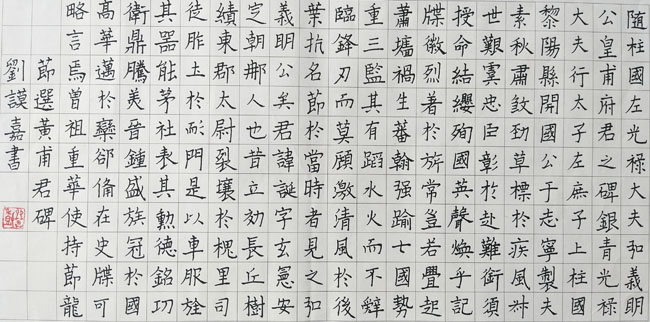 隨柱國左光祿大夫弘義明
公皇甫府君之碑銀青光祿
大夫行太子左庶子上柱國
黎陽縣開國公于志寧製夫
素秋肅煞勁草標於疾風叔
世艱虞忠臣彰於赴難銜須
授命結纓殉國英聲煥乎記
牒徽烈著於旂常豈若舋起
蕭墻禍生蕃翰强踰七國勢
重三監其有蹈水火而不辭
臨鋒刃而莫顧激清風於後
葉抗名節於當時者見之弘
義明公矣君諱誕字玄憲安
定朝那人也昔立効長丘樹
績東郡太尉裂壤於槐里司
徒胙土於耏門是以車服旌
其器能茅社表其勳德銘功
衛鼎騰美晉鍾盛族冠於國
高華邁於欒郤備在史牒可
略言焉曾祖重華使持節龍
節選黃甫君碑
劉謨嘉書